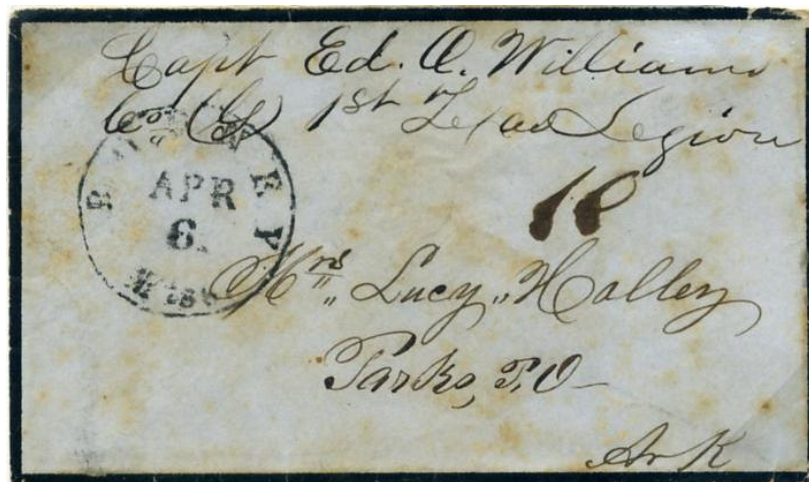 Capt Ed. O. Williams
Co. G, 1st Texas Legion
APR
6.
Miss
10
Mrs,, Lucy,, Halley
Parks, P.O—
Ark